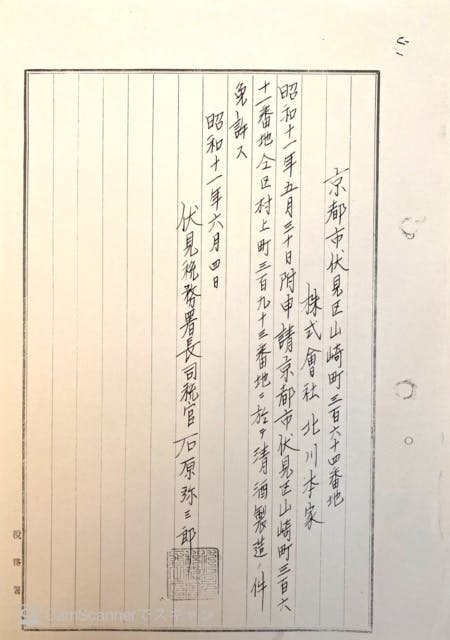 京都市伏見区山崎町三百六十四番地
株式會社北川本家
昭和十一年五月三十日附申請京都市伏見区山崎町三百六
十一番地仝区村上町三百九十三番地ニ於ケ清酒製造ノ件
免許ス
昭和十一年六月四日
伏見税務署長司税官 石原弥三郎
税務署
CamScannerでスキャン